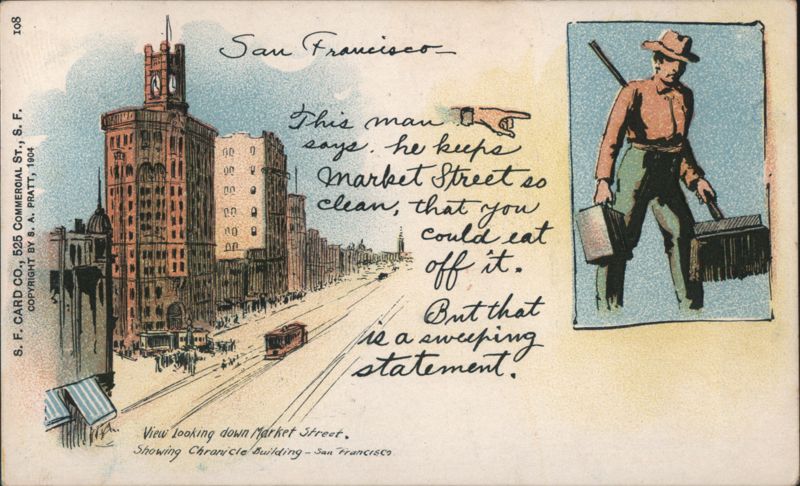 108
S. F. CARD CO., 525 COMMERCIAL ST., S. F.
COPYRIGHT BY S. A. PRATT, 1904
San Francisco
This man
says. he keeps
Market Street so
clean, that you
could eat
off it.
But that
is a sweeping
statement.
View looking down Market Street.
Showing Chronicle Building - San Francisco